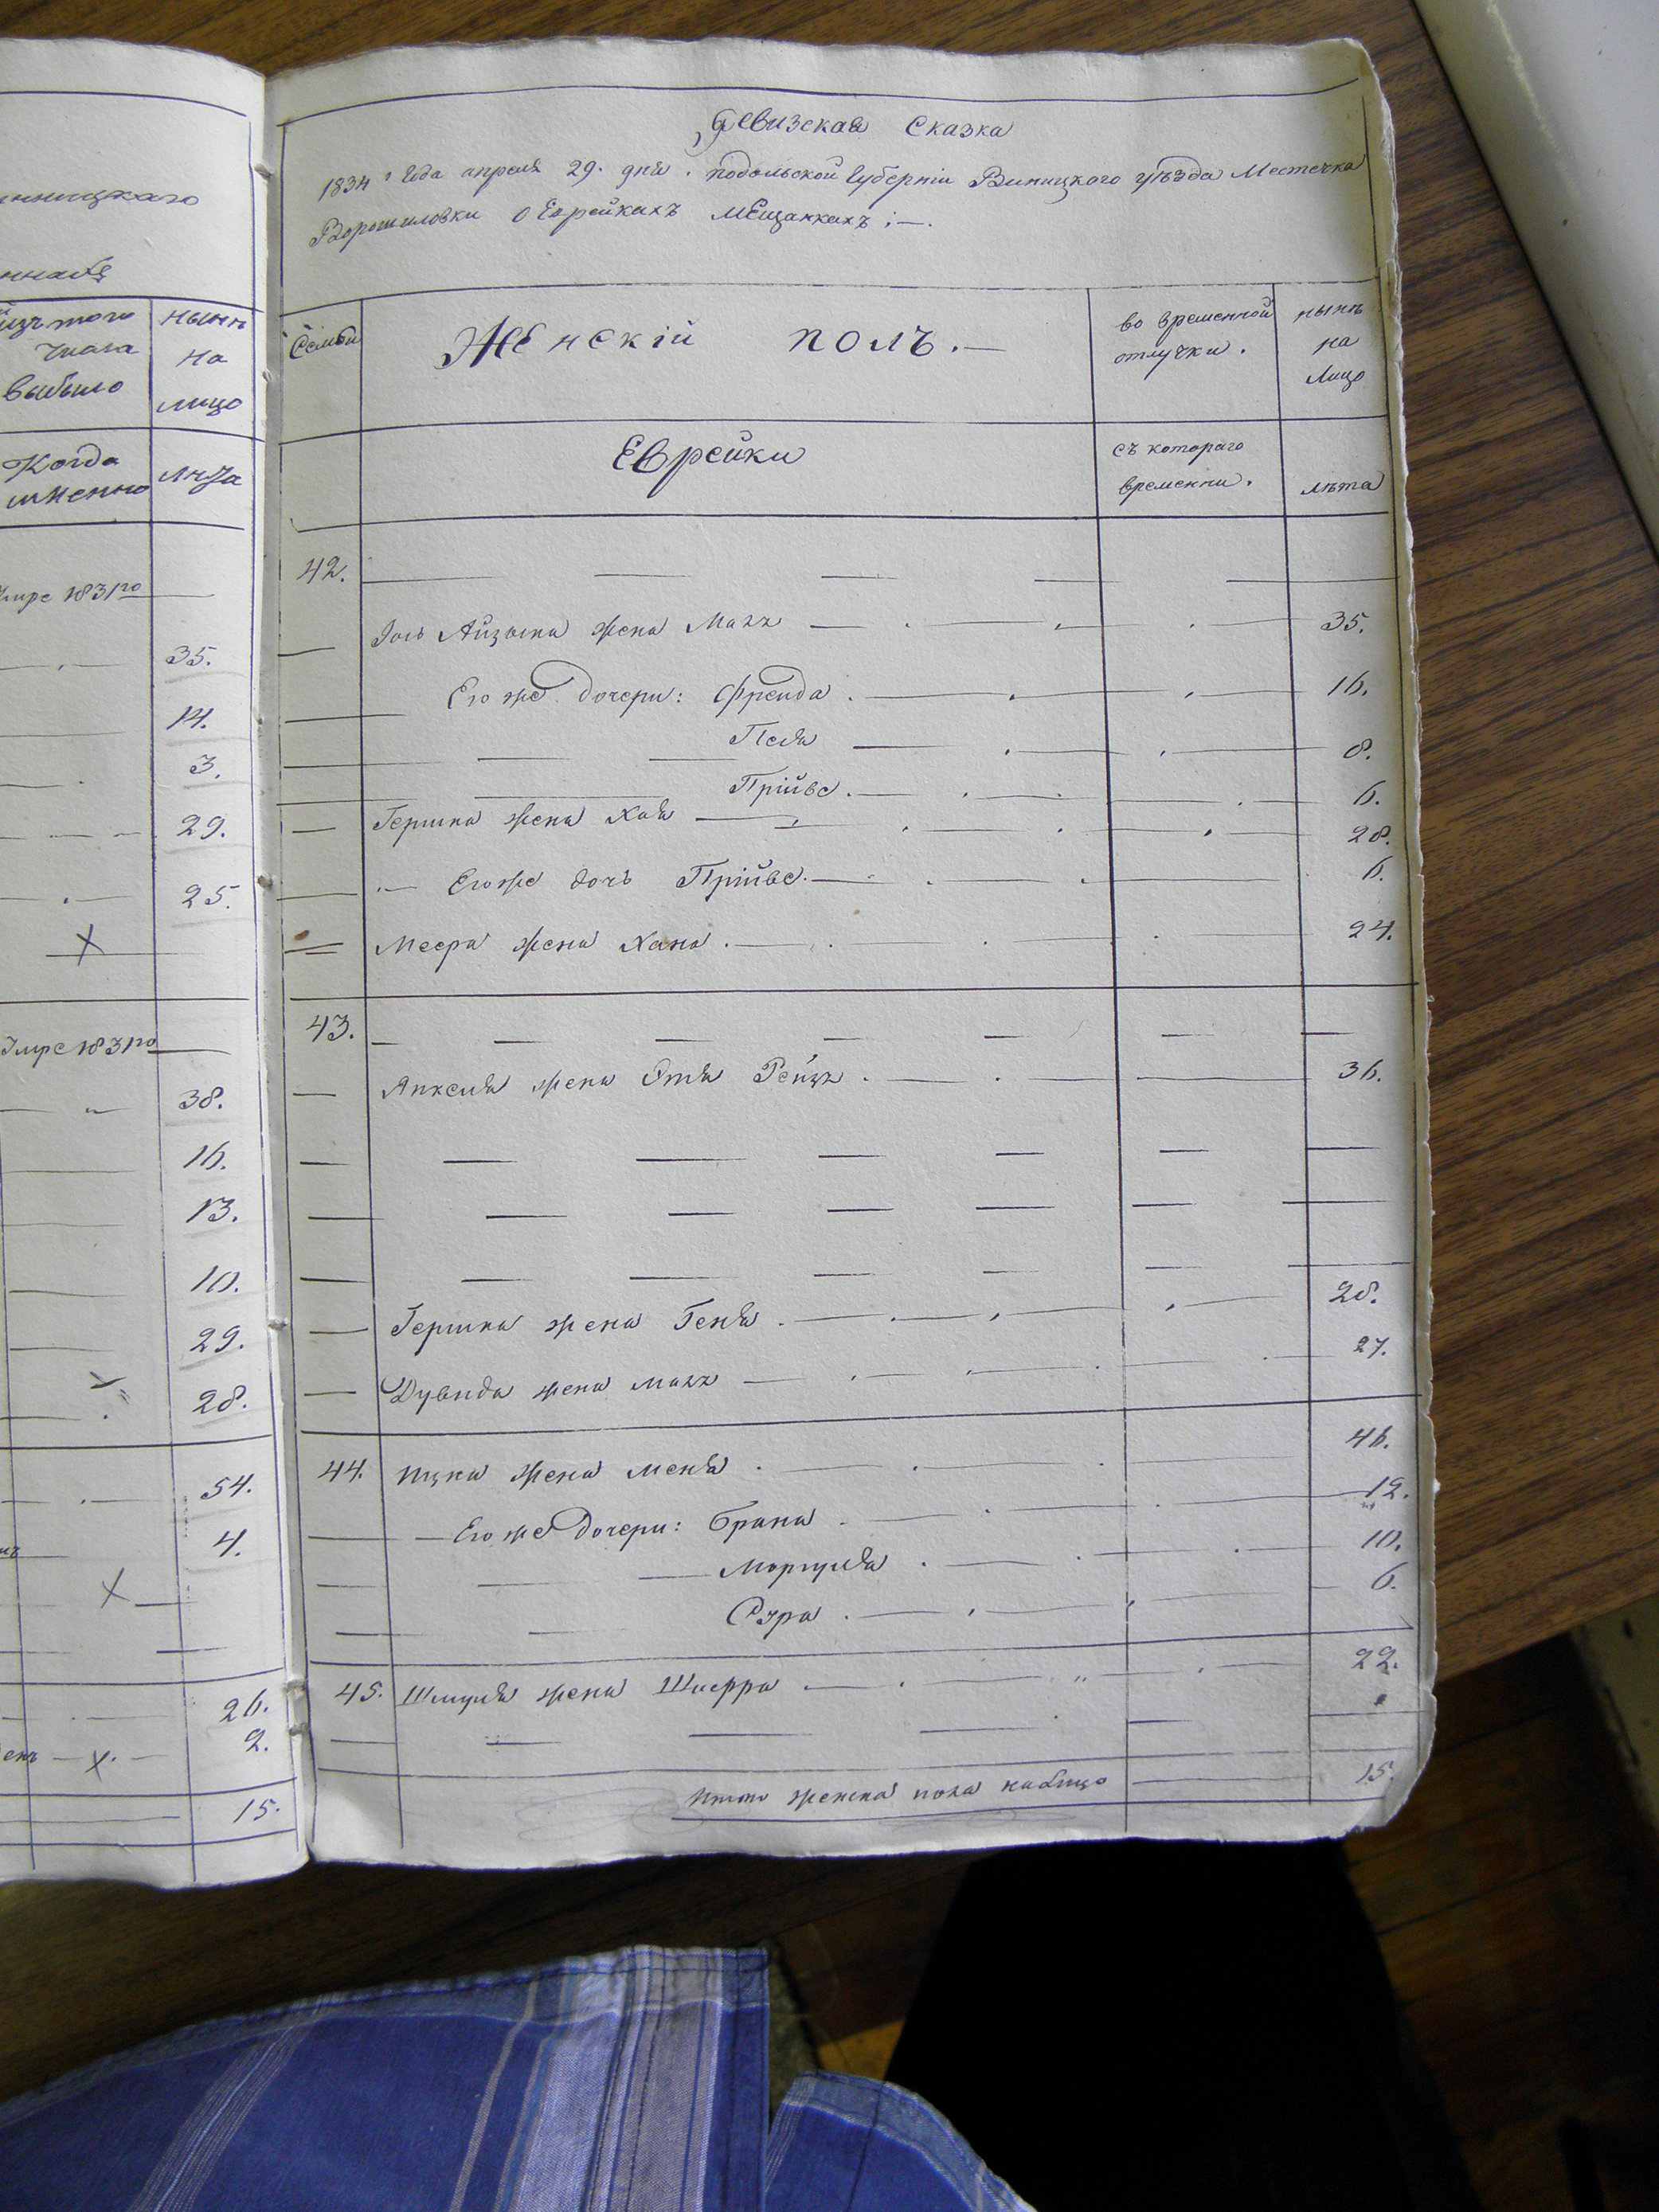 нницкаго
изъ того
числа
выбыло
ныне
на
лицо
Когда
именно
лѣта
Умре 1831го
35.
14.
3.
29.
25.
Х
Умре 1831го
38.
16.
13.
10.
29.
28.
54.
4.
Х
26.
2.
15.
Ревизская Сказка
1834 Года апреля 29. дня. подольской Губерніи Виницкого уѣзда Местечка
Ворошиловки о Еврейкахъ мещанкахъ:—.
Семьи
Женскій полъ.—
во временной
отлучки.
нынѣ
на
лицо
Еврейки
съ котораго
временни.
лѣта
42.
Айзыка жена Малк 35.
Его же дочери: Фрейда. 16.
Песя 8.
Прійве. 6.
Гершка жена Хая 28.
Его же дочь Прійве. 6.
Меера жена Хана. 24.
43.
Янкеля жена Рейзя. 36.
Гершка жена Геня. 28.
Дувида жена малк 27.
44. Ицка жена меня. 46.
Его же дочери: Брана. 12.
Моргуля. 10.
Сура. 6.
45. Шмуля жена Шифра 22.
Итого женска пола налицо 15.